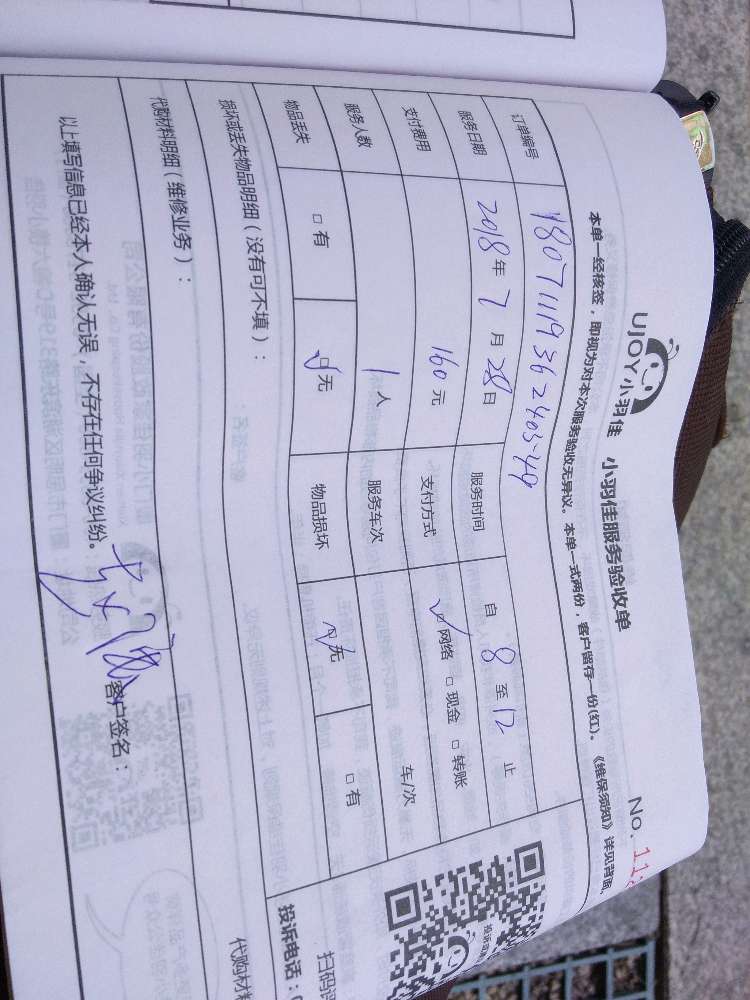 UJOY小羽佳 小羽佳服务验收单
No. 11
本单一经核签，即视为对本次服务验收无异议。本单一式两份，客户留存一份(红)。《维保须知》详见背面。
订单编号
服务日期 2018年7月28日 服务时间 自 8 至 12 止
支付费用 160元 支付方式 ☑网络 □现金 □转账
服务人数 1人 服务车次 车/次
物品丢失 □有 ☑无 物品损坏 ☑无 □有
损坏或丢失物品明细（没有可不填）：
代购材料明细（维修业务）： 代购材
以上填写信息已经本人确认无误，不存在任何争议纠纷。 客户签名：
扫码
投诉电话：